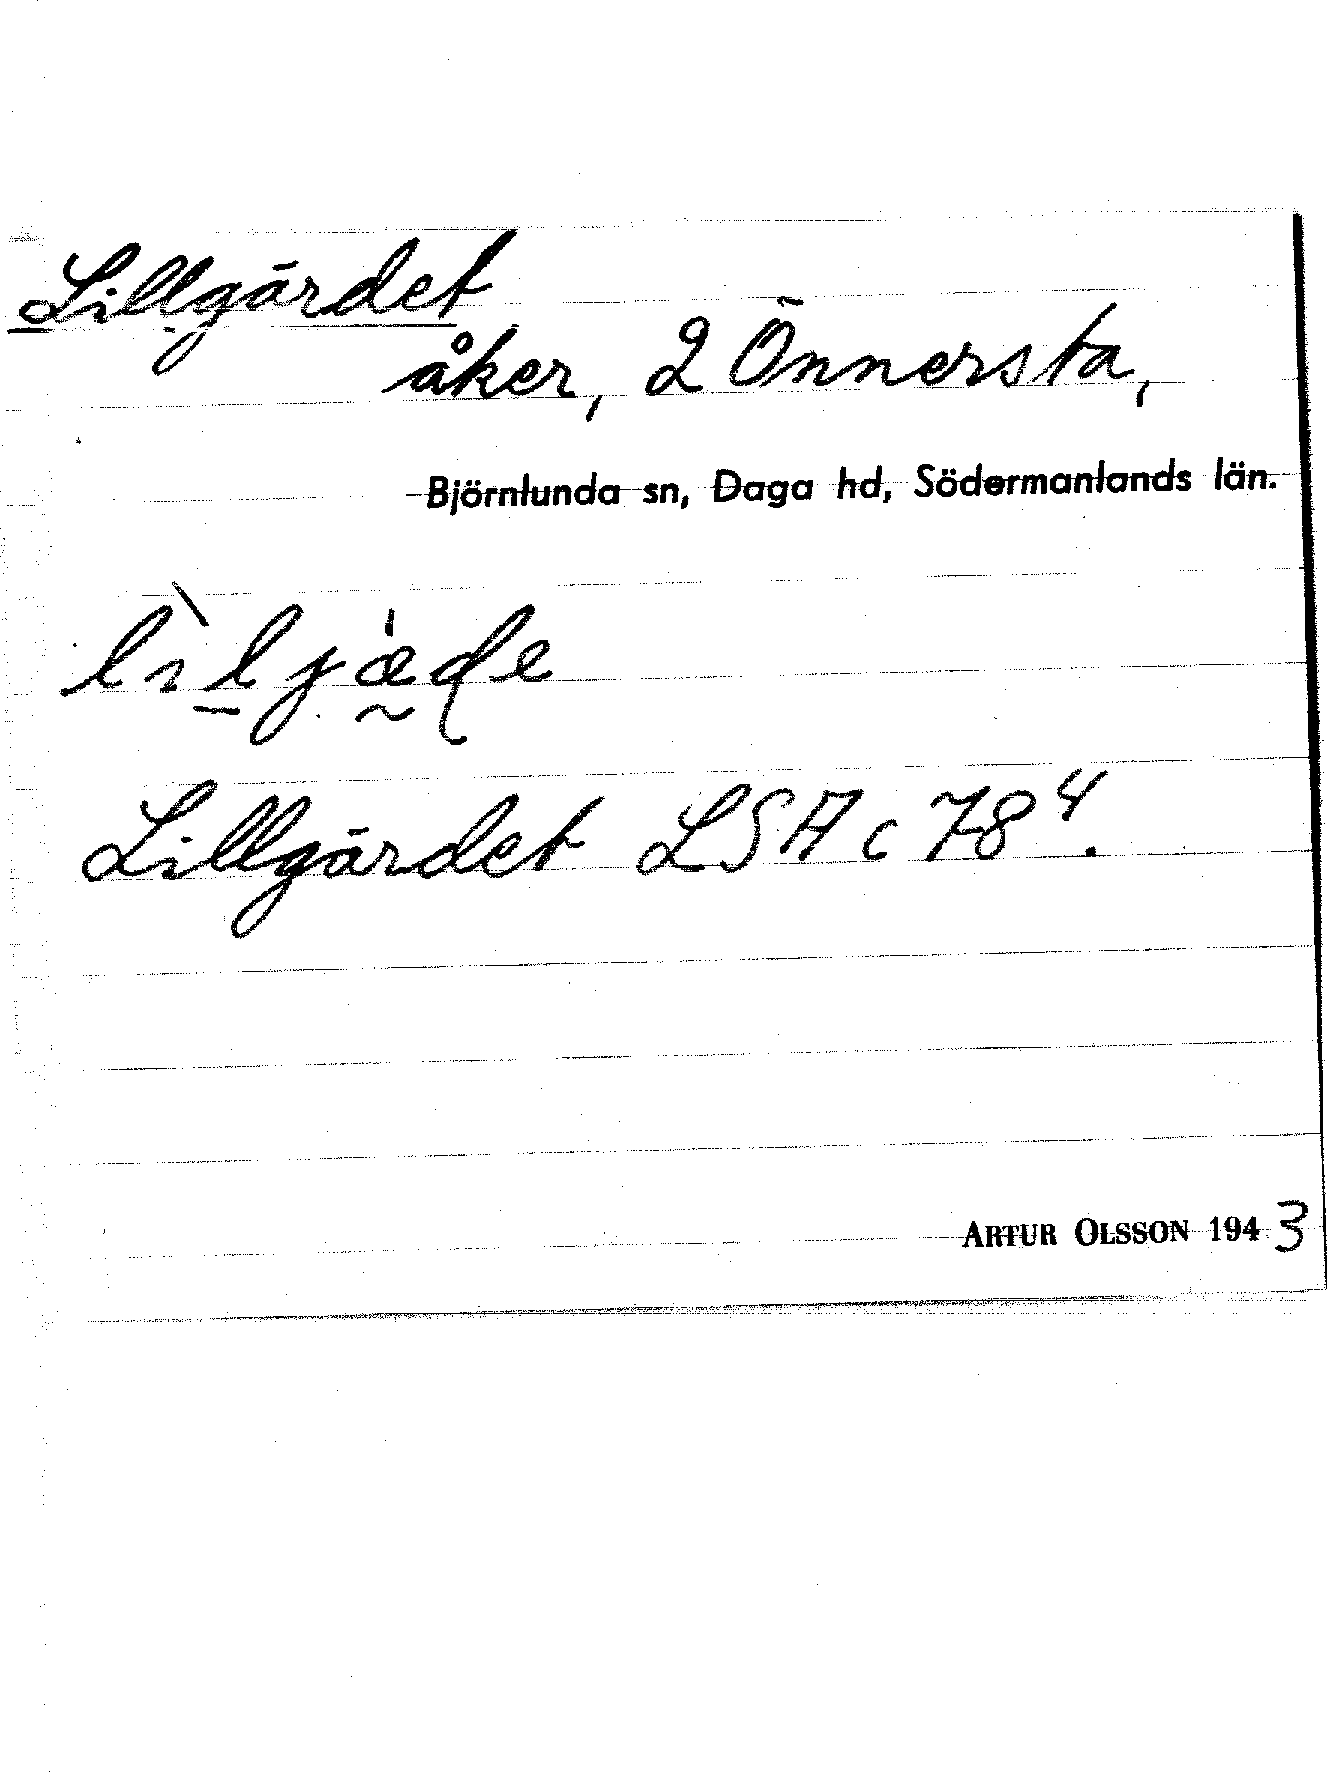 Lillgärdet
åker, 2 Önnersta,
Björnlunda sn, Daga hd, Södermanlands län.
Lillgärdet LSA c 78⁴.
ARTUR OLSSON 1943